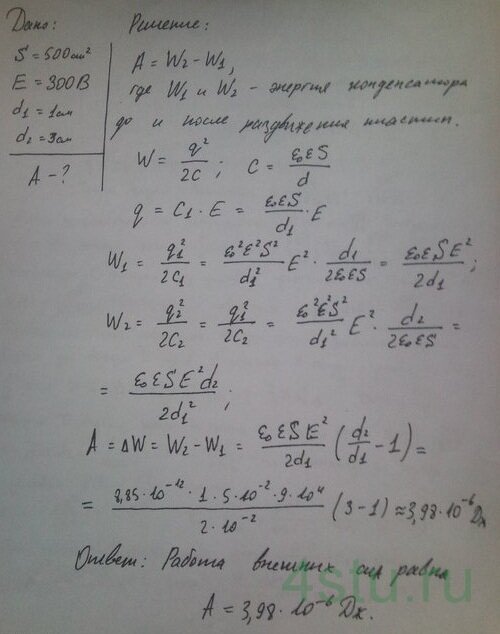 Дано:
S = 500 см²
E = 300 В
d₁ = 1 см
d₂ = 3 см
A - ?
Решение:
A = W₂ - W₁,
где W₁ и W₂ - энергия конденсатора
до и после раздвижения пластин.
W = q²/2C ; C = ε₀εS/d
q = C₁ · E = ε₀εS/d₁ · E
W₁ = q₁²/2C₁ = ε₀²ε²S²/d₁² E² · d₁/2ε₀εS = ε₀εSE²/2d₁ ;
W₂ = q₂²/2C₂ = q₁²/2C₂ = ε₀²ε²S²/d₁² E² · d₂/2ε₀εS =
= ε₀εSE²d₂/2d₁² ;
A = ΔW = W₂ - W₁ = ε₀εSE²/2d₁ (d₂/d₁ - 1) =
= 8,85·10⁻¹² · 1 · 5·10⁻² · 9·10⁴/2·10⁻² (3-1) ≈ 3,98·10⁻⁶ Дж
Ответ: Работа внешних сил равна
A = 3,98 · 10⁻⁶ Дж.
4stu.ru